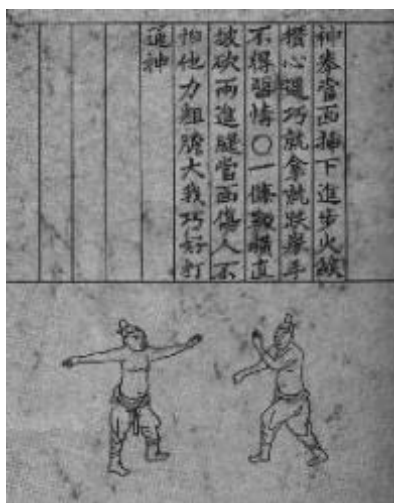 神拳當面插下進步火燄
攢心遇巧就拿就跌舉手
不得留情○一條鞭橫直
披砍兩進腿當面傷人不
怕他力粗膽大我巧好打
通神